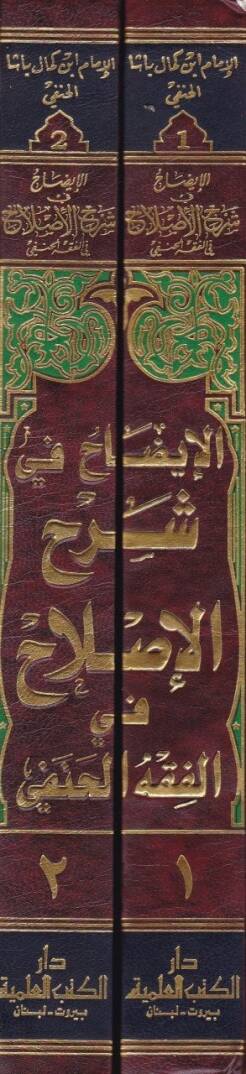 الإمام ابن كمال باشا
الحنفي
1
الإيضاح
في
شرح الإصلاح
في الفقه الحنفي
الإمام ابن كمال باشا
الحنفي
2
الإيضاح
في
شرح الإصلاح
في الفقه الحنفي
الإيضاح في
شرح
الإصلاح
في
الفقه الحنفي
١
٢
دار
الكتب العلمية
بيروت - لبنان
دار
الكتب العلمية
بيروت - لبنان